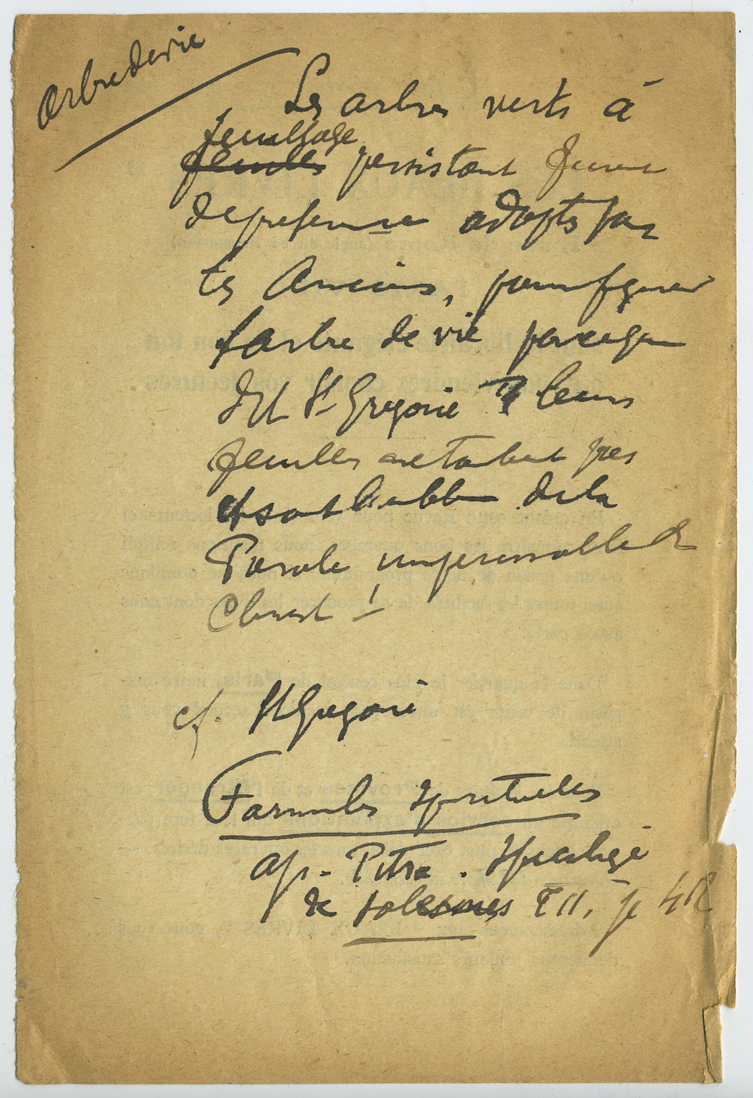 Arbre de vie
Les arbres verts à
feuillage
feuilles persistant furent
de préférence adoptés par
les Anciens, pour figurer
l'arbre de vie parce que
dit St Gregoire leurs
feuilles ne tombent pas
et sont l'emblème de la
Parole impérissable du
Christ !
cf. St Gregoire
Formules spirituelles
ap. Pitra. Spicilège
de Solesmes T II. p.